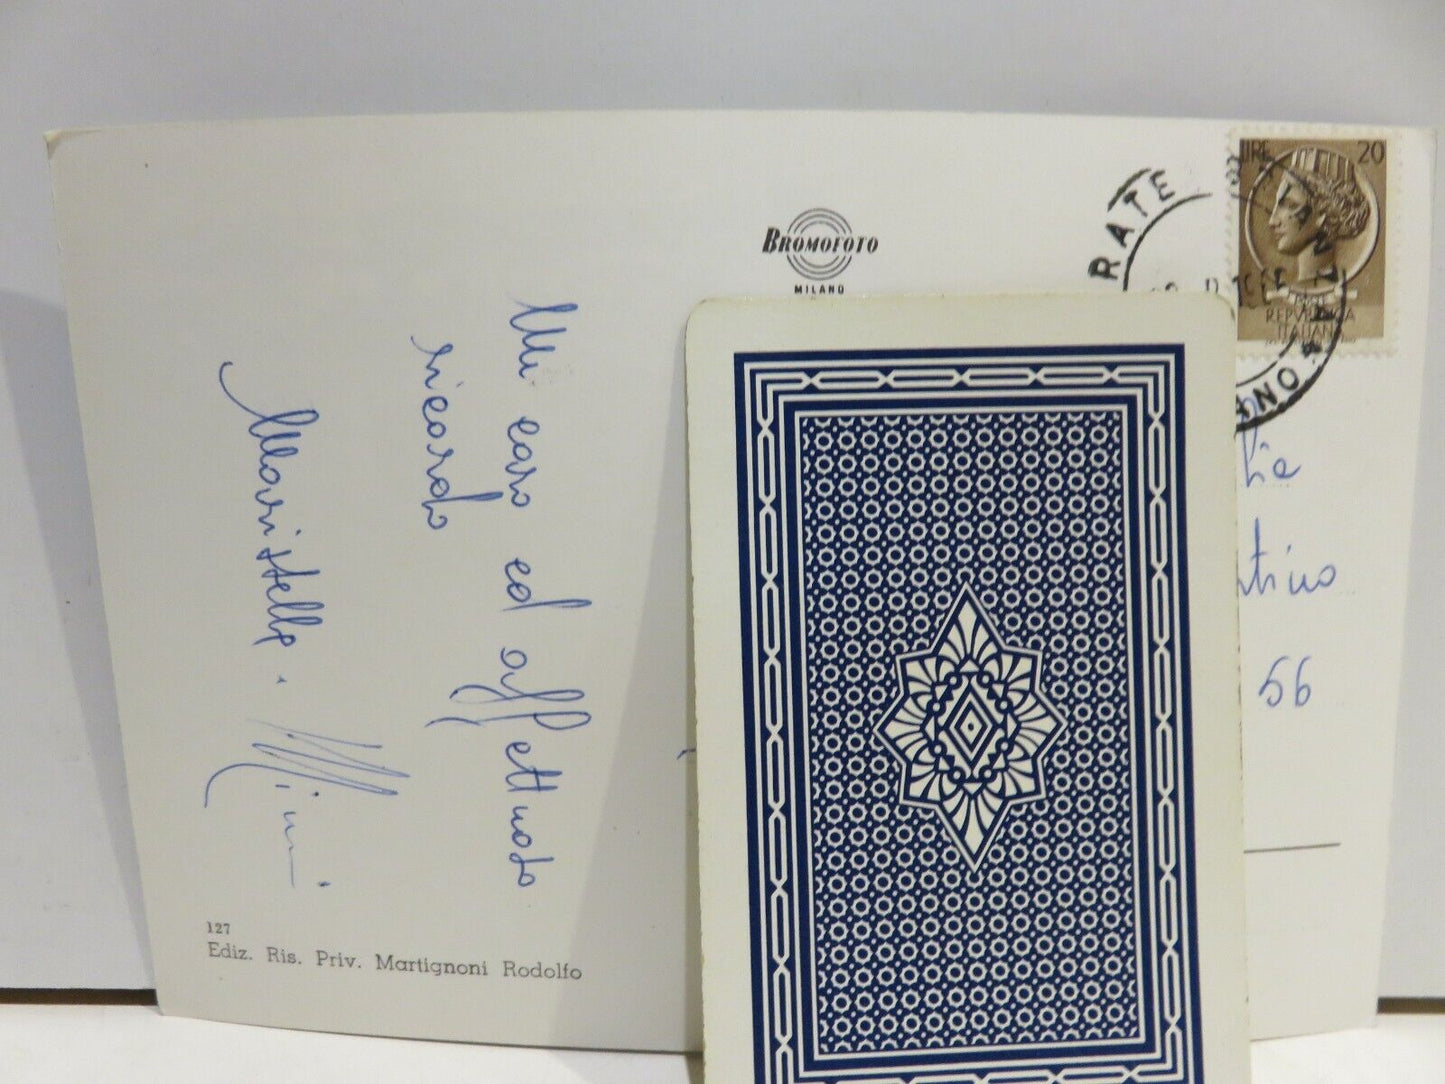 BROMOFOTO
MILANO
LIRE 20
REPVBBLICA
ITALIANA
RATE
Un caro ed affettuoso
ricordo
Maristella.
Mimi
56
127
Ediz. Ris. Priv. Martignoni Rodolfo